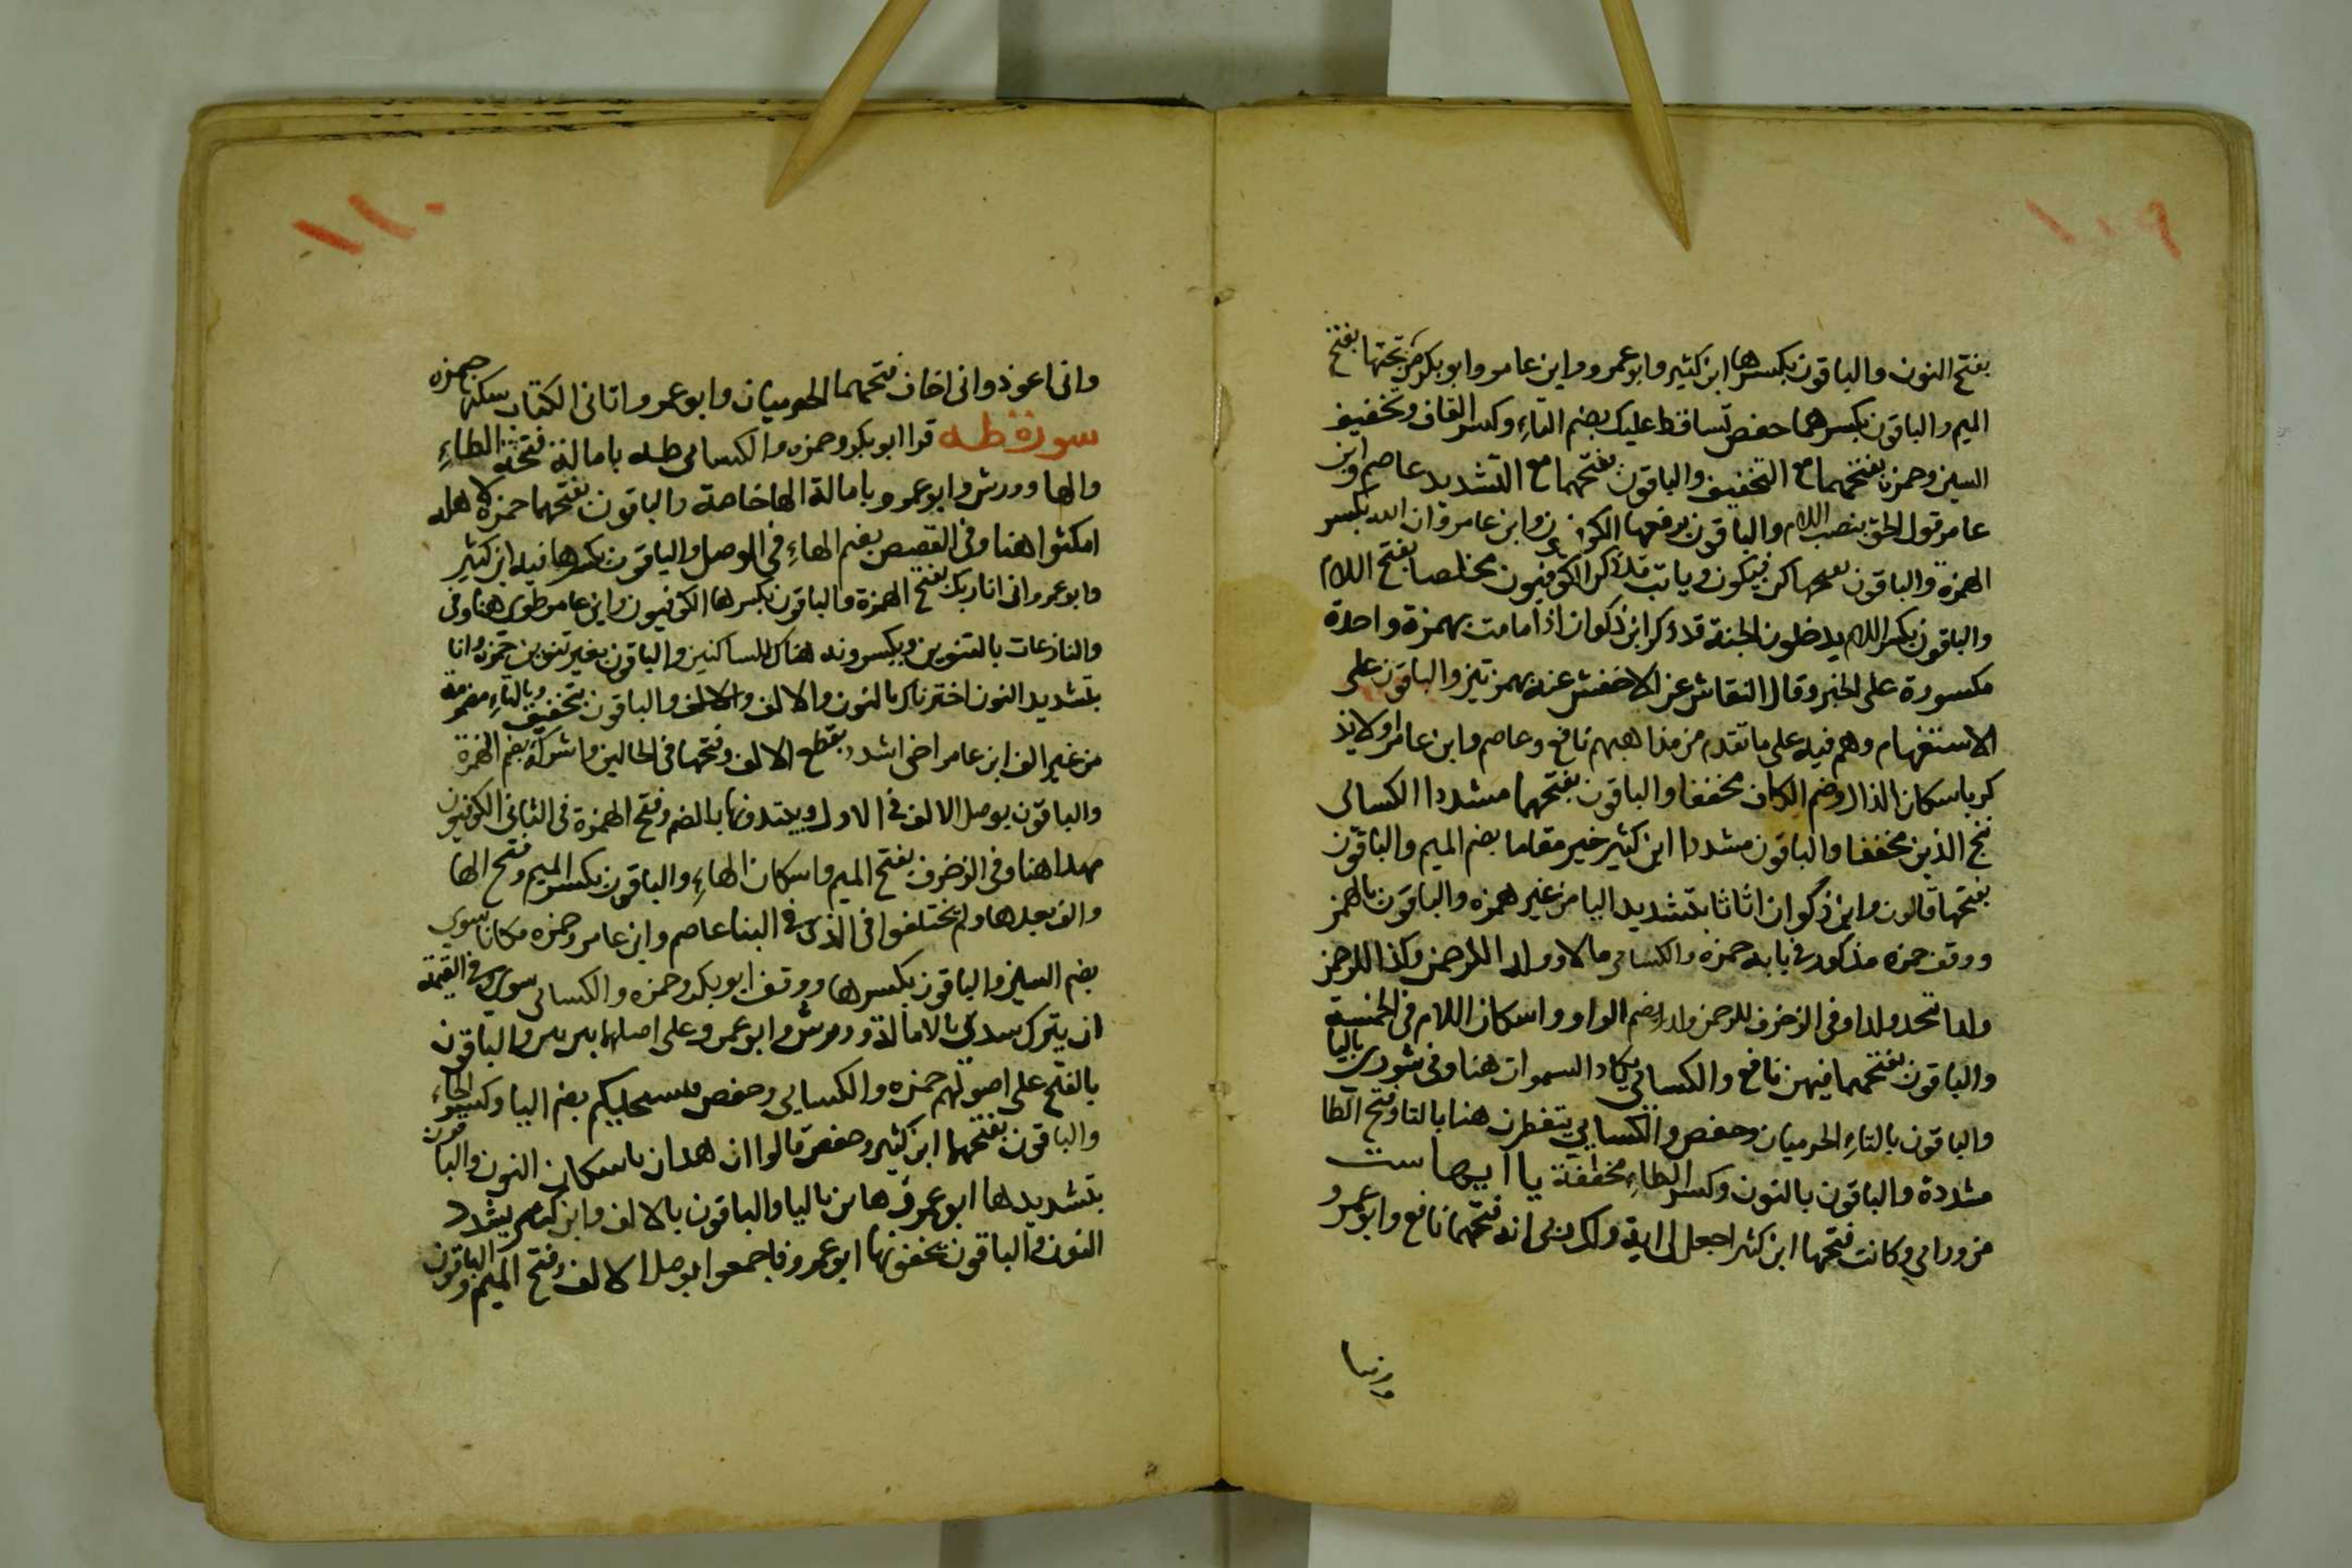 ١٠٩
بفتح النون والباقون بكسرها ابن كثير وابو عمرو وابن عامر وابو بكر من تحتها بفتح
الميم والباقون بكسرهما حفص تساقط عليك بضم التاء وكسر القاف وتخفيف
السين وحمزة بفتحهما مع التخفيف والباقون بفتحهما مع التشديد عاصم وابن
عامر قول الحق بنصب اللام والباقون برفعها الكوفيون وابن عامر وان الله بكسر
الهمزة والباقون بفتحها كن فيكون ويا ابت قد ذكر الكوفيون مخلصا بفتح اللام
والباقون بكسر اللام يدخلون الجنة قد ذكر ابن ذكوان اذا ما مت بهمزة واحدة
مكسورة على الخبر وقال النقاش عن الاخفش عنه بهمزتين والباقون على
الاستفهام وهم فيه على ما تقدم من مذاهبهم نافع وعاصم وابن عامر اولا يذ
كر باسكان الذال وضم الكاف مخففا والباقون بفتحهما مشددا الكسائى
ننج الذين مخففا والباقون مشددا ابن كثير خير مقاما بضم الميم والباقون
بفتحها قالون وابن ذكوان اثاثا بتشديد اليا من غير همزه والباقون بالهمز
ووقف حمزه مذكور فى بابه حمزه والكسائى مالا وولدا للرحمن وكذا للرحمن
ولدا تحد ولدا وفى الزخرف للرحمن ولد بضم الواو واسكان اللام فى الخمسة
والباقون بفتحهما فيهن نافع والكسائى يكاد السموات هنا وفى شورى باليا
والباقون بالتاء الحرميان وحفص والكسائى يتفطرن هنا بالتا وفتح الطا
مشددة والباقون بالنون وكسر الطاء مخففة يااايهاست
من وراءى وكانت فتحها ابن كثير اجعل لى اية ولك ربى انه فتحهما نافع وابو عمرو
١١٠
وانى اعوذ وانى اخاف فتحهما الحرميان وابو عمرو واتانى الكتاب سكنها حمزه
سورة طه قرا ابو بكر وحمزه والكسائى طه بامالة فتحة الطاء
والها وورش وابو عمرو بامالة الها خاصة والباقون بفتحهما حمزة لاهله
امكثوا هنا وفى القصص بضم الهاء فى الوصل والباقون بكسرها فيه ابن كثير
وابو عمرو انى انا ربك بفتح الهمزة والباقون بكسرها الكوفيون وابن عامر طوى هنا وفى
والنازعات بالتنوين ويكسرونه هناك للساكنين والباقون بغير تنوين حمزه وانا
بتشديد النون اخترناك بالنون والالف والالف والباقون بتخفيف وبالتاء مضمومة
من غير الف ابن عامر اخى اشدد بقطع الالف وفتحها فى الحالين واشركه بضم الهمزة
والباقون بوصل الالف فى الاول ويبتدونها بالضم وفتح الهمزة فى الثانى الكوفيون
مهدا هنا وفى الزخرف بفتح الميم واسكان الهاء والباقون بكسر الميم وفتح الها
والف بعدها ولم يختلفوا فى الذى فى النبا عاصم وابن عامر وحمزه مكانا سوى
بضم السين والباقون بكسرها ووقف ابو بكر وحمزه والكسائى سوى وفى القيمة
ان يترك سدى بالامالة وورش وابو عمرو على اصلهما بين بين والباقون
بالفتح على اصولهم حمزه والكسايى وحفص فيسحتكم بضم اليا وكسر الحاء
والباقون بفتحهما ابن كثير وحفص قالوا ان هذان باسكان النون والباقون
بتشديدها ابو عمرو هاذين باليا والباقون بالالف وابن كثير يشدد
النون والباقون يخففونها ابو عمرو فاجمعوا بوصل الالف وفتح الميم والباقون